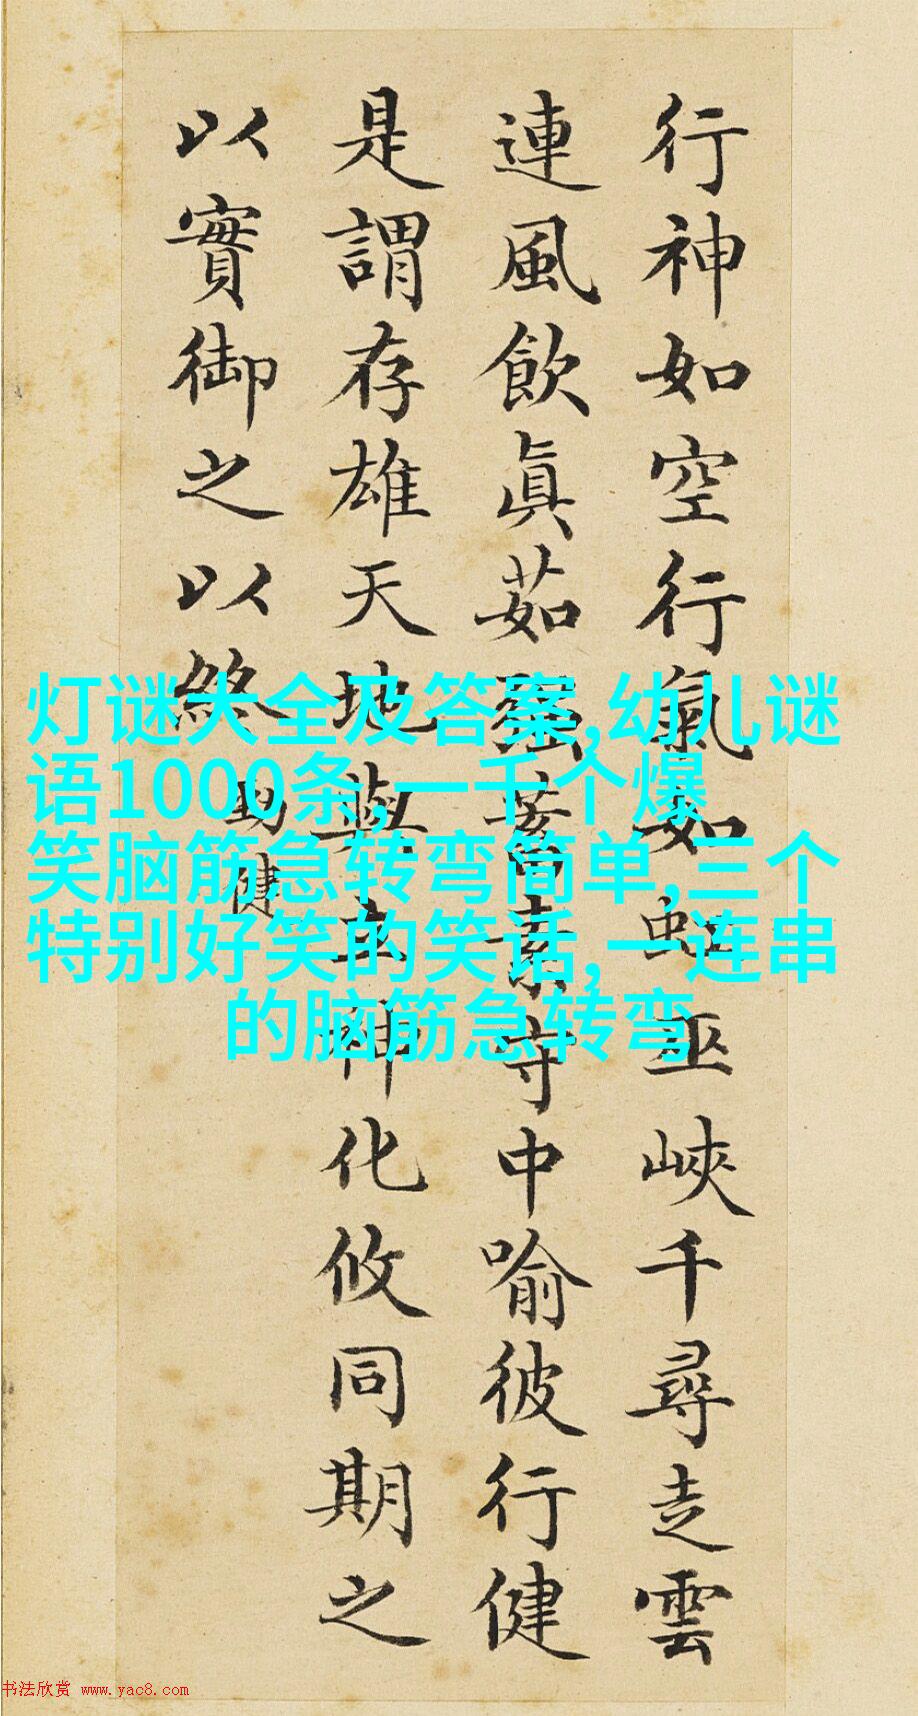 行神如空行氣如虹巫峽千尋走雲
連風飲眞茹强蓄素守中喻彼行健
是謂存雄天地與立神化攸同期之
以實御之以終
勁健
灯谜大全及答案,幼儿谜
语1000条,一千个爆
笑脑筋急转弯简单,三个
特别好笑的笑话,一连串
的脑筋急转弯
书法欣赏 www.yac8.com